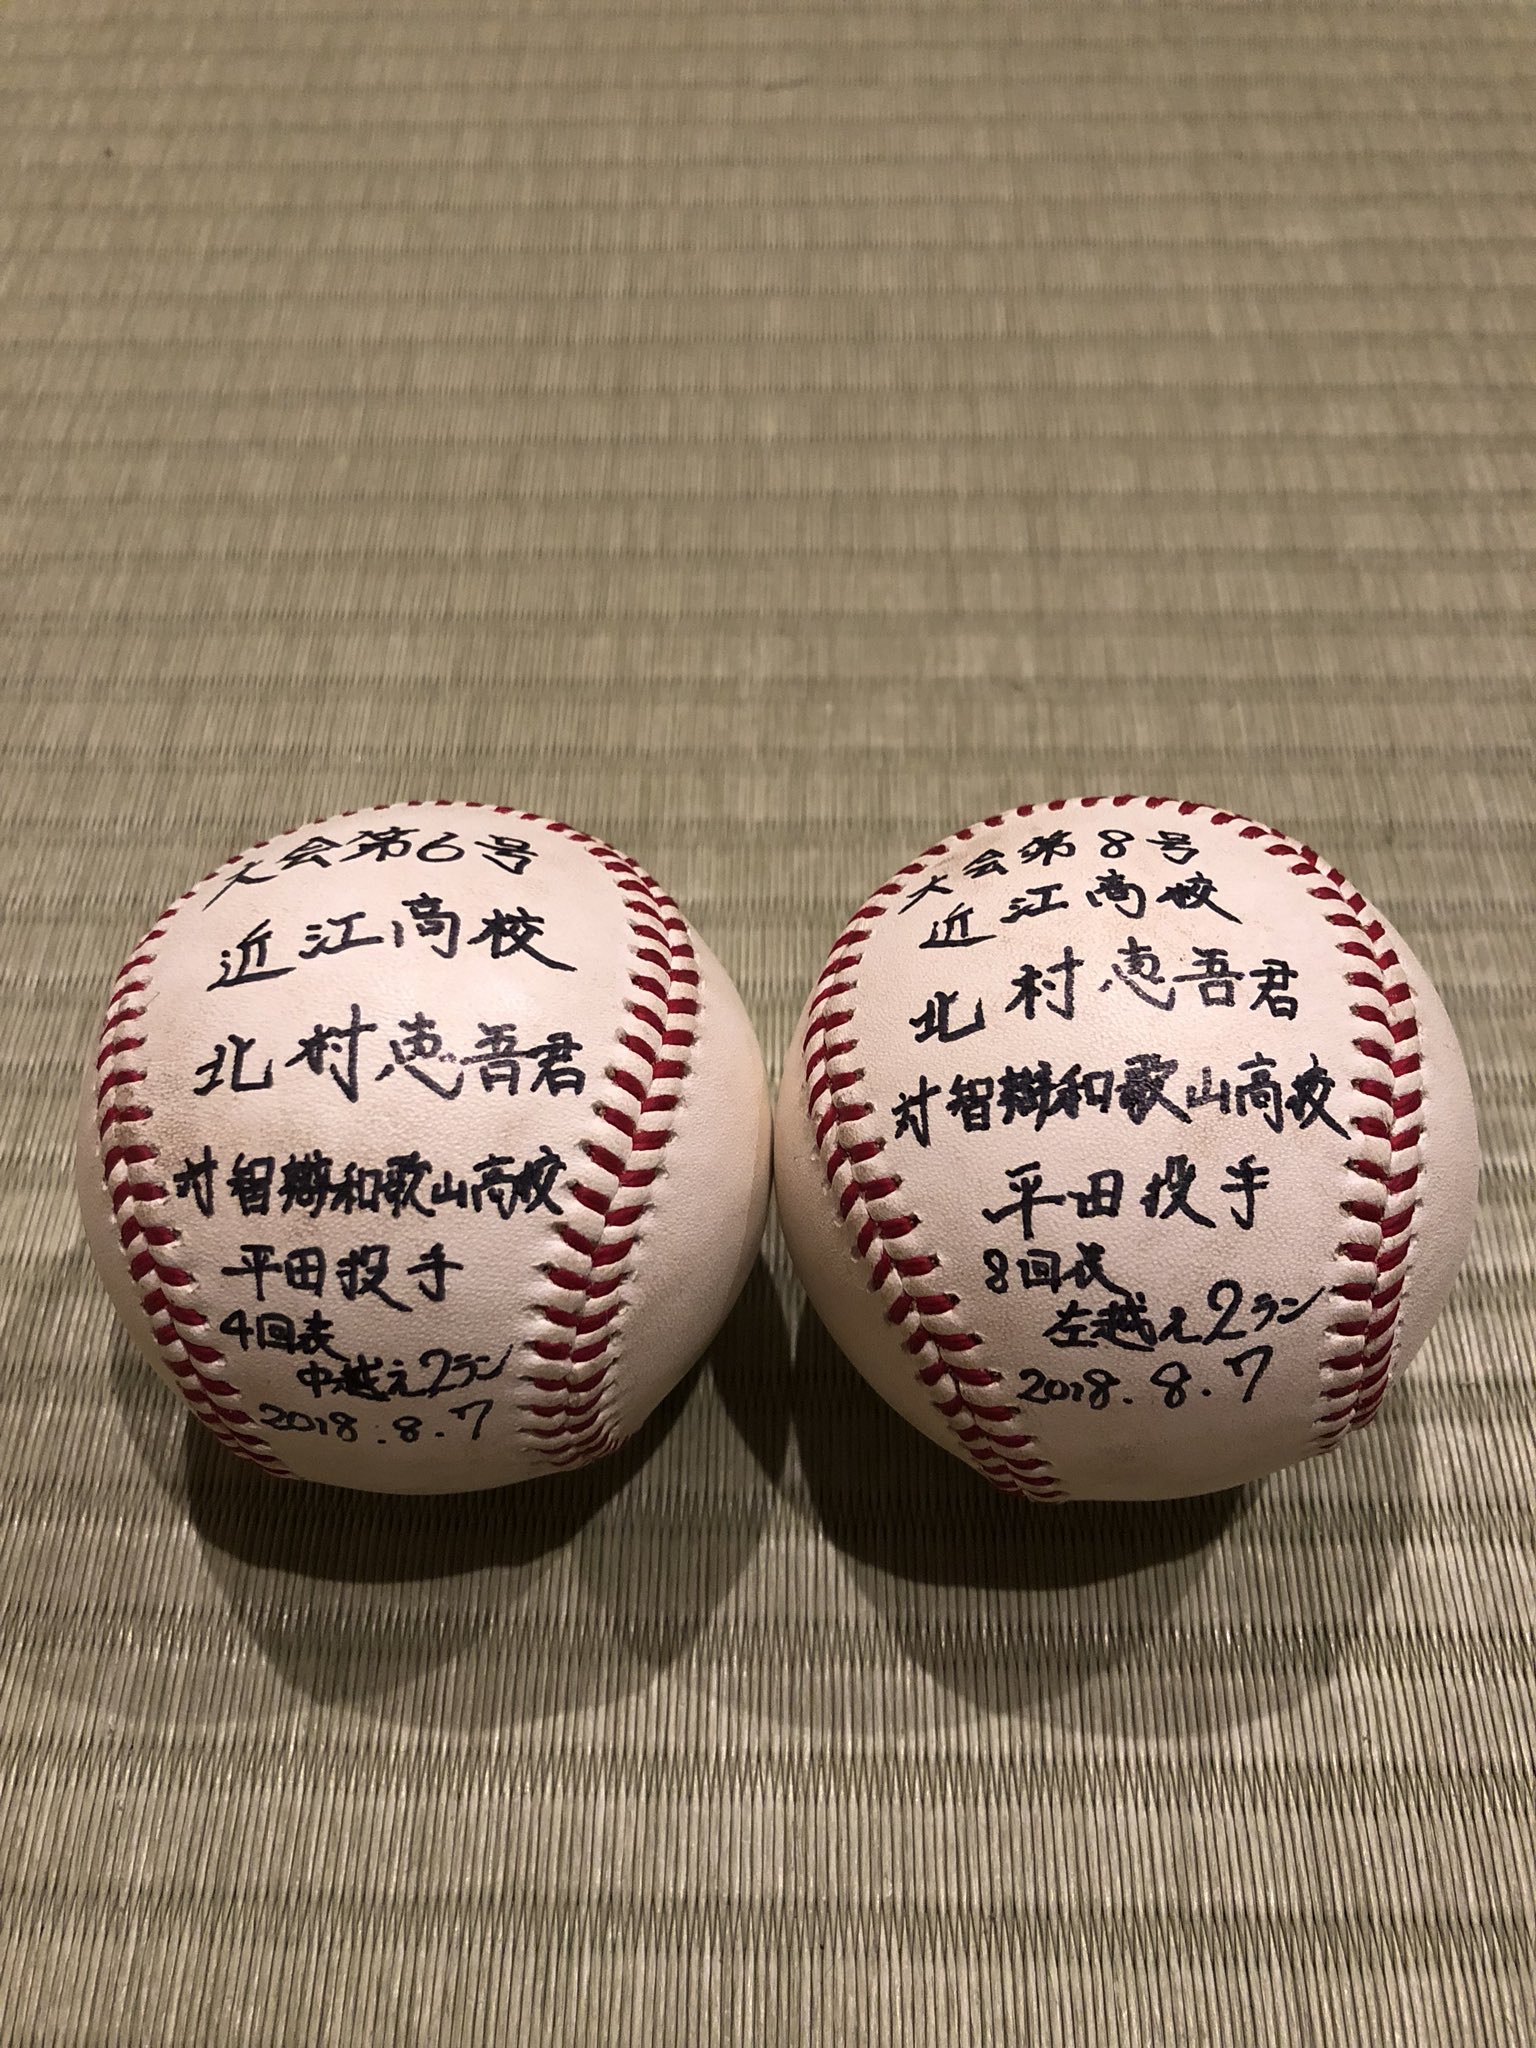 大会第6号
近江高校
北村恵吾君
対智辯和歌山高校
平田投手
4回表
中越え2ラン
2018.8.7
大会第8号
近江高校
北村恵吾君
対智辯和歌山高校
平田投手
8回表
左越え2ラン
2018.8.7